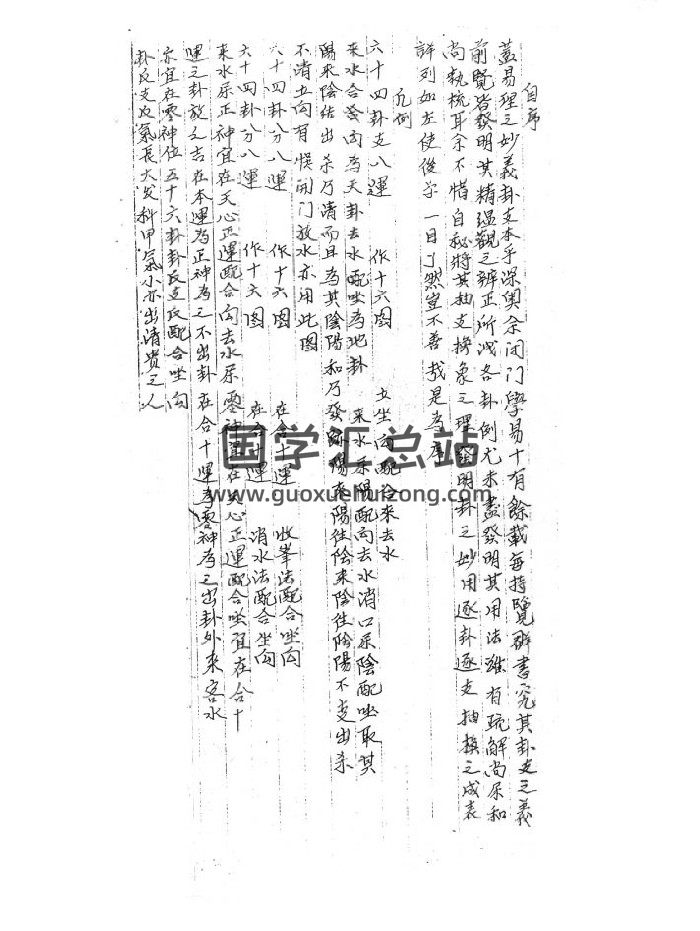 自序
蓋易理之妙義卦支本乎深奧余闭门學易十有餘載每持覽群書究其卦支之義
前覽皆發明其精蕴觀之辨正所泄各卦例尤未盡發明其用法雖有疏解尚屬和
尚執梳耳余不惜自秘將其抽支換象之理發明卦之妙用逐卦逐支抽換之成表
詳列如左使後学一目了然豈不善哉是為序
凡例
六十四卦支八運 作十六图 立坐向配合来去水
来水合發向為天卦去水配坐為地卦 来水屬陽配向去水消口屬陰配坐取其
陽来陰结出杀乃清而且為其陰陽和乃發 陽来陽往陰来陰往陰陽不交出杀
不清立向有悮開门放水亦用此图
六十四卦分八運 作十六图 在合十運 收峯法配合坐向
六十四卦分八運 作十六图 在合十運 消水法配合坐向
来水屬正神宜在天心正運配合向去水屬零神宜在天心正運配合坐宜在合十
運之卦放之吉在本運為正神為之不出卦在合十運為零神為之出卦外来客水
亦宜在零神位五十六卦卦氏支氏配合坐向
卦反支反氣長大发科甲氣小亦出清贵之人
国学汇总站
www.guoxuehuizong.com